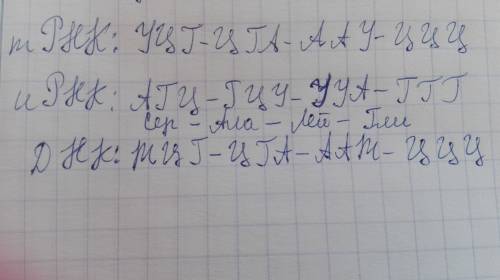 тРНК: УЦГ-ЦГА-ААУ-ЦЦЦ
иРНК: АГЦ-ГЦУ-УУА-ГГГ
Сер-Ала-Лей-Гли
ДНК: ТЦГ-ЦГА-ААТ-ЦЦЦ